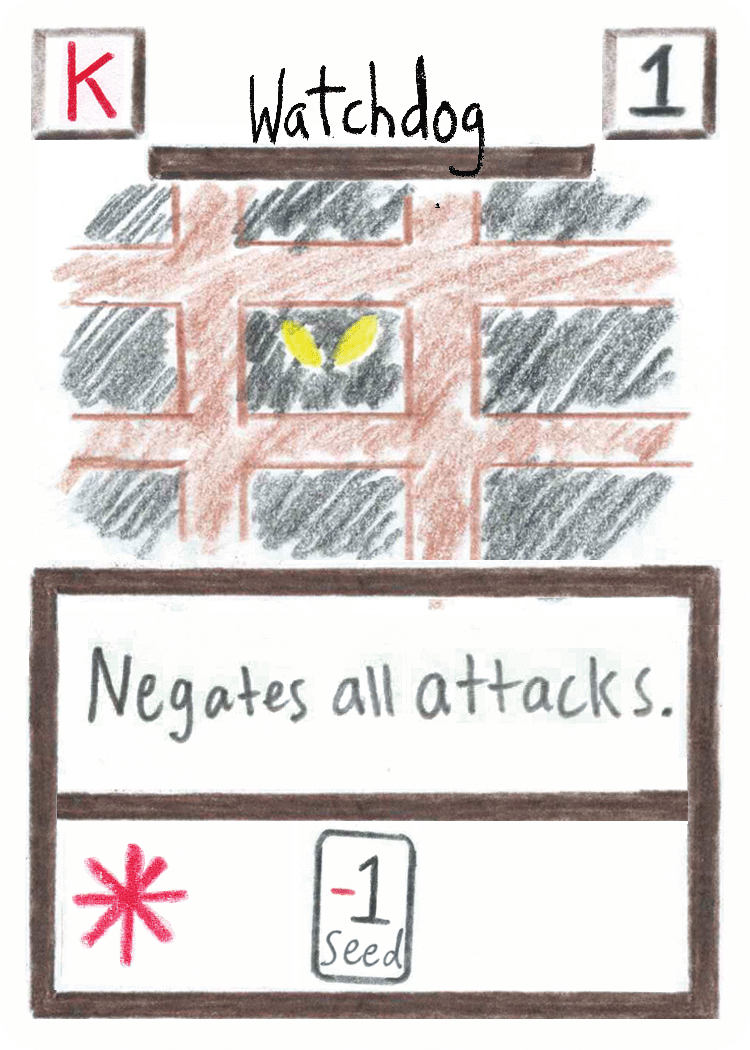 K
Watchdog
1
Negates all attacks.
-1
Seed